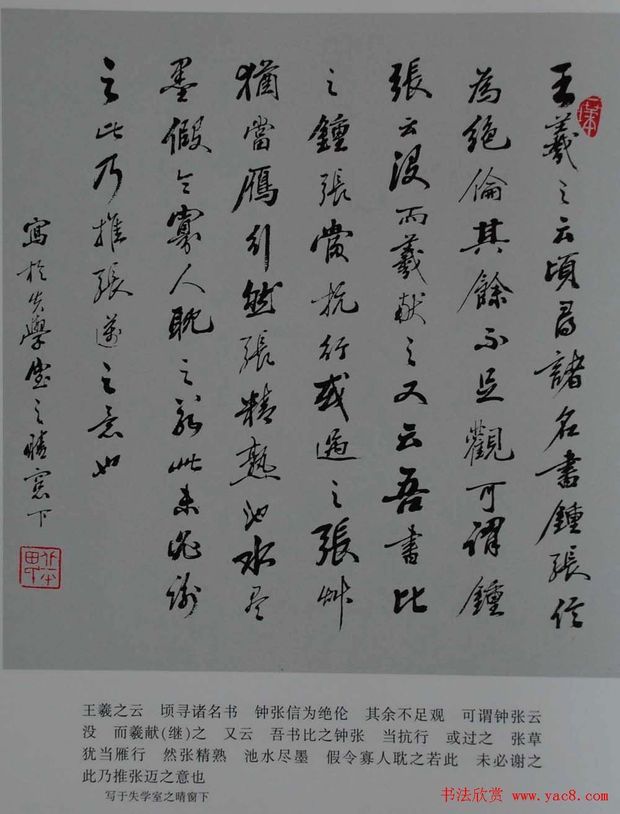 王羲之云頃尋諸名書鍾張信
為絕倫其餘不足觀可謂鍾
張云沒而羲獻之又云吾書比
之鍾張當抗行或過之張艸
猶當鴈行然張精熟池水盡
墨假令寡人耽之若此未必謝
之此乃推張邁之意也
寫於失學室之晴窓下
王羲之云 顷寻诸名书 钟张信为绝伦 其余不足观 可谓钟张云
没 而羲献(继)之 又云 吾书比之钟张 当抗行 或过之 张草
犹当雁行 然张精熟 池水尽墨 假令寡人耽之若此 未必谢之
此乃推张迈之意也
写于失学室之晴窗下
书法欣赏 www.yac8.com